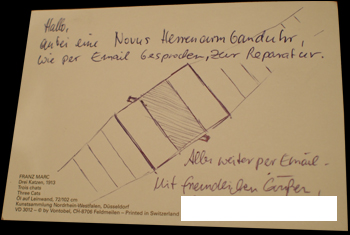 Hallo,
anbei eine Novus Herrenarmbanduhr,
wie per Email besprochen, zur Reparatur.
Alles weiter per Email.
Mit freundlichen Grüßen,
FRANZ MARC
Drei Katzen, 1913
Trois chats
Three Cats
Öl auf Leinwand, 72/102 cm
Kunstsammlung Nordrhein-Westfalen, Düsseldorf
VD 3012 – © by Vontobel, CH-8706 Feldmeilen – Printed in Switzerland